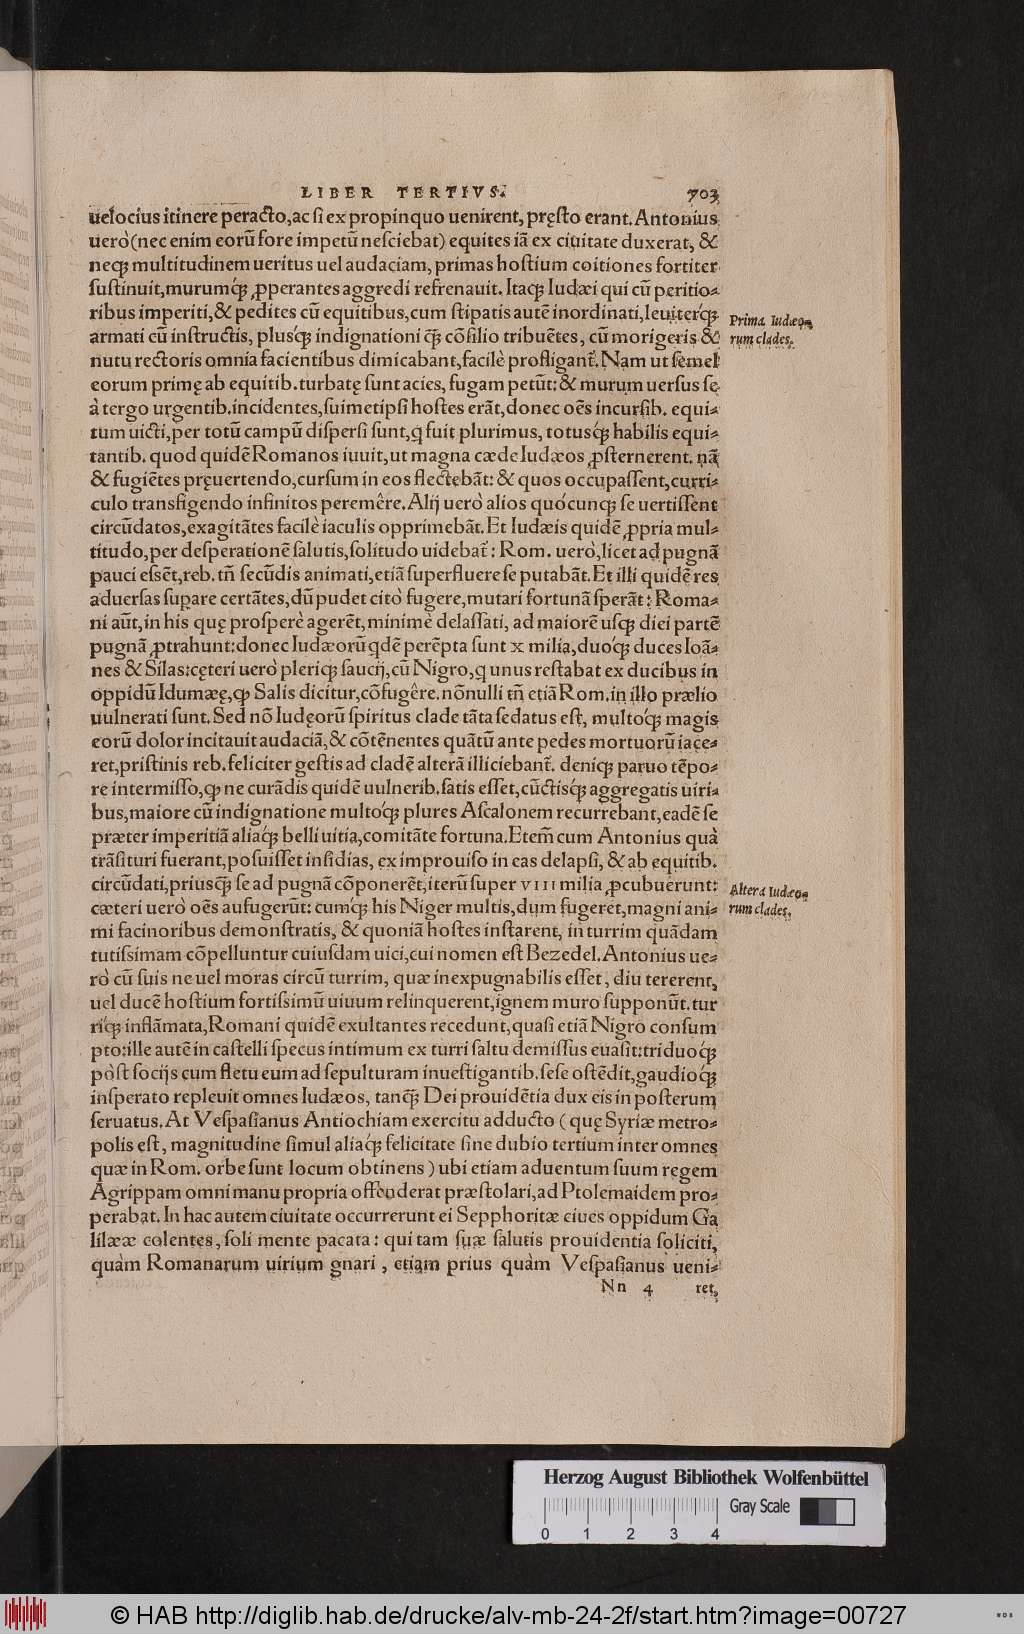 LIBER TERTIVS. 703
uelocius itinere peracto,ac si ex propinquo uenirent, pręsto erant. Antonius
uerò(nec enim eorũ fore impetũ nesciebat) equites iã ex ciuitate duxerat, &
neqꝫ multitudinem ueritus uel audaciam, primas hostium coitiones fortiter
sustinuit,murumq́ꝫ ꝓperantes aggredi refrenauit. Itaqꝫ Iudæi qui cũ peritio-
ribus imperiti,& pedites cũ equitibus,cum stipatis autẽ inordinati,leuiterqꝫ
armati cũ instructis, plusq́ꝫ indignationi q̃ꝫ cõsilio tribuẽtes, cũ morigeris &
nutu rectoris omnia facientibus dimicabant,facilè profligant̃. Nam ut semel
eorum primę ab equitib. turbatę sunt acies, fugam petũt: & murum uersus se
à tergo urgentib.incidentes,suimetipsi hostes erãt,donec oẽs incursib. equi-
tum uicti,per totũ campũ dispersi sunt,q fuit plurimus, totusq́ꝫ habilis equi-
tantib. quod quidẽ Romanos iuuit,ut magna cæde Iudæos ꝓsternerent. nã
& fugiẽtes pręuertendo,cursum in eos flectebãt: & quos occupassent,curri-
culo transfigendo infinitos peremêre.Alij uerò alios quócunqꝫ se uertissent
circũdatos,exagitãtes facilè iaculis opprimebãt. Et Iudæis quidẽ ꝓpria mul-
titudo,per desperationẽ salutis,solitudo uidebat̃: Rom. uerò,licet ad pugnã
pauci essẽt,reb. tñ secũdis animati,etiã superfluere se putabãt. Et illi quidẽ res
aduersas supare certãtes,dũ pudet citò fugere,mutari fortunã sperãt: Roma-
ni aũt,in his quę prosperè agerẽt,minimè delassati, ad maiorẽ usqꝫ diei partẽ
pugnã ꝓtrahunt:donec Iudæorũ qdẽ perẽpta sunt x milia,duoq́ꝫ duces Ioã-
nes & Silas:cęteri uerò pleriqꝫ saucij,cũ Nigro,q unus restabat ex ducibus in
oppidũ Idumææ,ꝙ Salis dicitur,cõfugêre.nõnulli tñ etiã Rom.in illo prælio
uulnerati sunt. Sed nõ Iudęorũ spiritus clade tãta sedatus est, multoq́ꝫ magis
eorũ dolor incitauit audaciã,& cõtẽnentes quãtũ ante pedes mortuorũ iace-
ret,pristinis reb.feliciter gestis ad cladẽ alterã illiciebant̃. deniqꝫ paruo tẽpo-
re intermisso,ꝙ ne curãdis quidẽ uulnerib.satis esset,cũctisq́ꝫ aggregatis uiri-
bus,maiore cũ indignatione multoq́ꝫ plures Ascalonem recurrebant,eadẽ se
præter imperitiã aliaq́ꝫ belli uitia,comitãte fortuna.Etem̃ cum Antonius quà
trãsituri fuerant,posuisset insidias, ex improuiso in eas delapsi, & ab equitib.
circũdati,priusq̃ꝫ se ad pugnã cõponerẽt,iterũ super VIII milia ꝓcubuerunt:
cæteri uerò oẽs aufugerũt: cumq́ꝫ his Niger multis,dum fugeret,magni ani-
mi facinoribus demonstratis, & quoniã hostes instarent, in turrim quãdam
tutissimam cõpelluntur cuiusdam uici,cui nomen est Bezedel. Antonius ue-
rò cũ suis ne uel moras circũ turrim, quæ inexpugnabilis esset, diu tererent,
uel ducẽ hostium fortissimũ uiuum relinquerent,ignem muro supponũt. tur
riq́ꝫ inflãmata,Romani quidẽ exultantes recedunt,quasi etiã Nigro consum
pto:ille autẽ in castelli specus intimum ex turri saltu demissus euasit:triduoq́ꝫ
pòst socijs cum fletu eum ad sepulturam inuestigantib.sese ostẽdit,gaudioq́ꝫ
insperato repleuit omnes Iudæos, tanq̃ꝫ Dei prouidẽtia dux eis in posterum
seruatus. At Vespasianus Antiochiam exercitu adducto (quę Syriæ metro-
polis est, magnitudine simul aliaq́ꝫ felicitate sine dubio tertium inter omnes
quæ in Rom. orbe sunt locum obtinens) ubi etiam aduentum suum regem
Agrippam omni manu propria offenderat præstolari,ad Ptolemaidem pro-
perabat. In hac autem ciuitate occurrerunt ei Sepphoritæ ciues oppidum Ga
lilææ colentes, soli mente pacata: qui tam suæ salutis prouidentia soliciti,
quàm Romanarum uirium gnari, etiam prius quàm Vespasianus ueni-
Nn 4 ret,
Prima Iudæo-
rum clades.
Altera Iudæo-
rum clades.
Herzog August Bibliothek Wolfenbüttel
Gray Scale
0 1 2 3 4
© HAB http://diglib.hab.de/drucke/alv-mb-24-2f/start.htm?image=00727